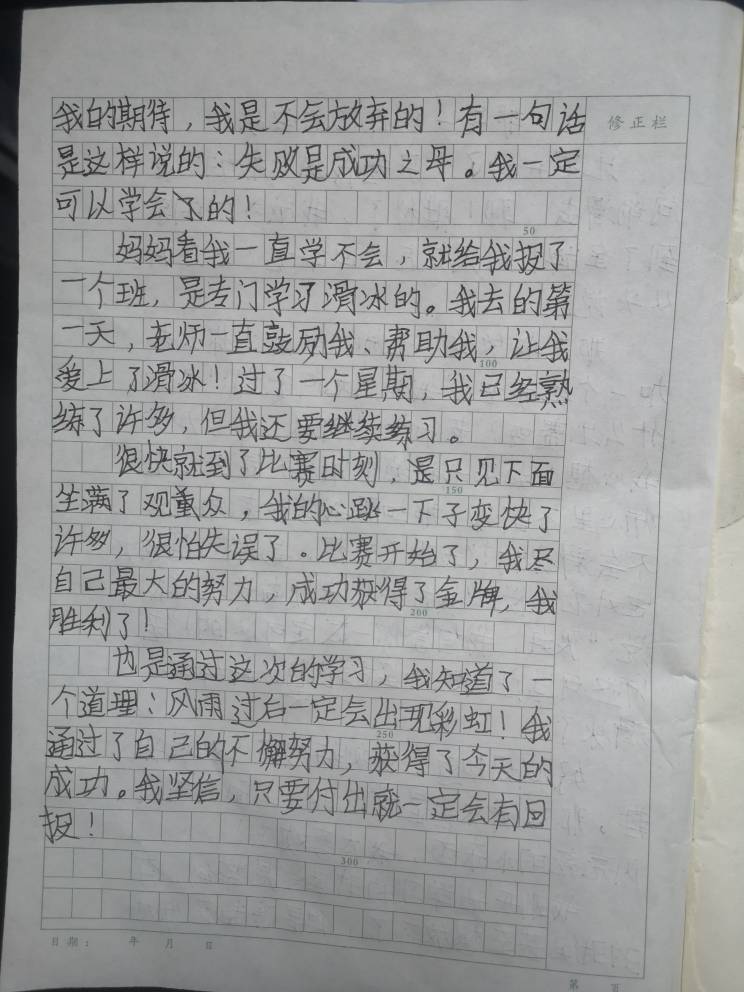 我的期待，我是不会放弃的！有一句话
修正栏
是这样说的：失败是成功之母。我一定
可以学会了的！
50
妈妈看我一直学不会，就给我报了
一个班，是专门学习滑冰的。我去的第
一天，老师一直鼓励我、帮助我，让我
100
爱上了滑冰！过了一个星期，我已经熟
练了许多，但我还要继续练习。
很快就到了比赛时刻，是只见下面
150
坐满了观众，我的心跳一下子变快了
许多，很怕失误了。比赛开始了，我尽
自己最大的努力，成功获得了金牌，我
200
胜利了！
也是通过这次的学习，我知道了一
个道理：风雨过后一定会出现彩虹！我
250
通过了自己的不懈努力，获得了今天的
成功。我坚信，只要付出就一定会有回
报！
300
日期： 年 月 日
第 页